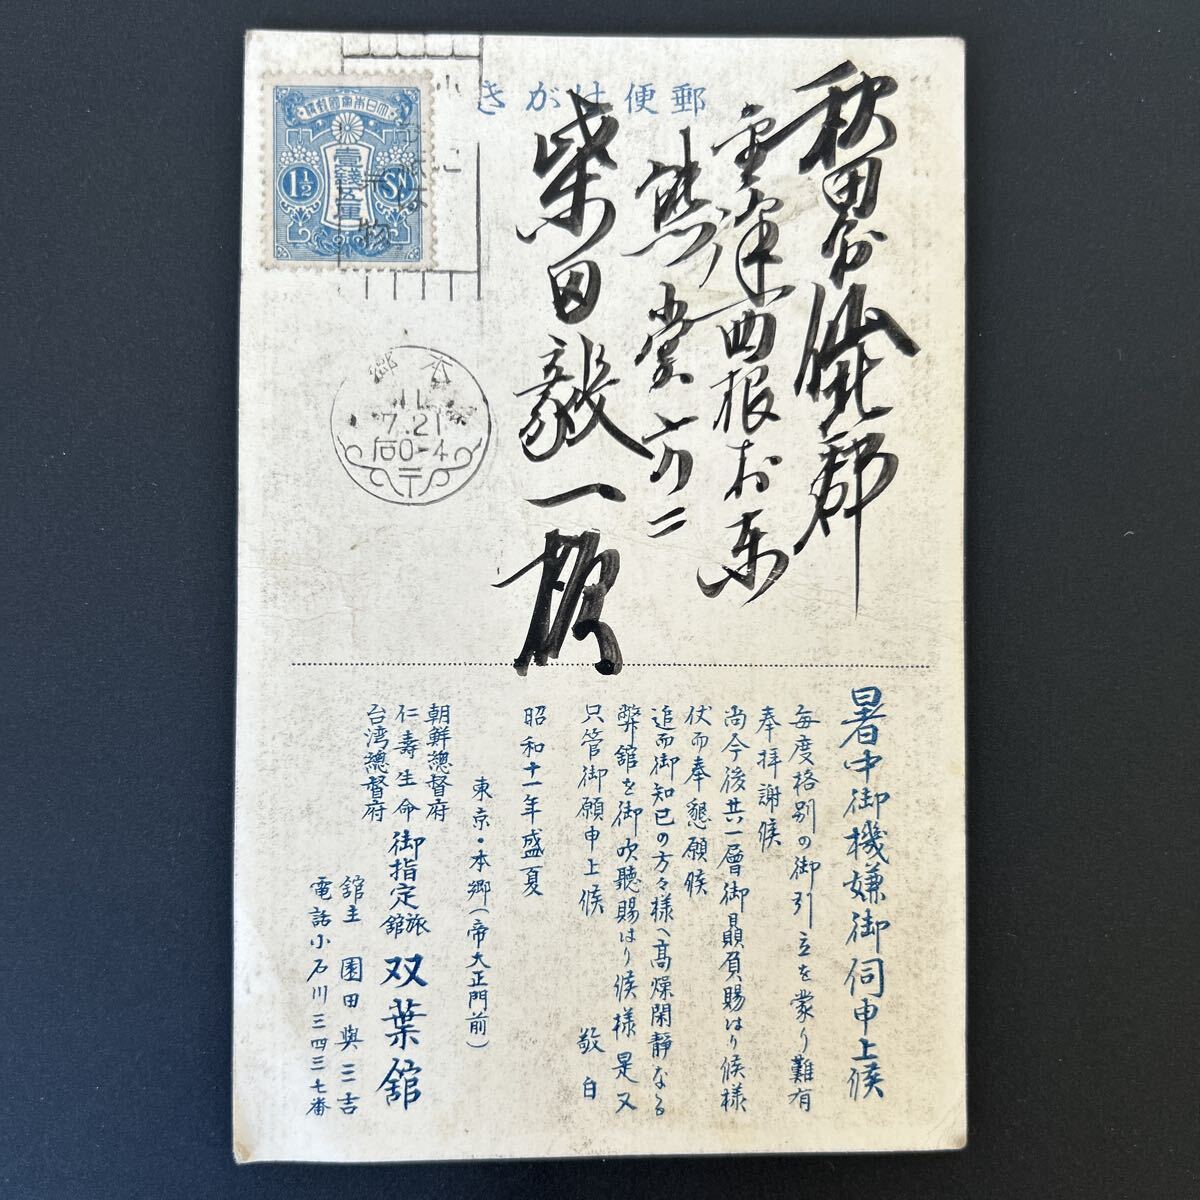 郵便はがき
大日本帝國郵便
壹錢五厘
1½ SN
本郷
11
7.21
后0-4
〒
秋田縣仙北郡
柴田毅一様
暑中御機嫌御伺申上候
毎度格別の御引立を蒙り難有
奉拝謝候
尚今後共一層御贔負賜はり候様
伏而奉懇願候
追而御知已の方々様へ高燥閑静なる
弊舘を御吹聴賜はり候様是又
只管御願申上候 敬白
昭和十一年盛夏
東京・本郷(帝大正門前)
朝鮮總督府
仁壽生命
台湾總督府
御指定旅舘 双葉舘
舘主 園田與三吉
電話小石川三四三七番